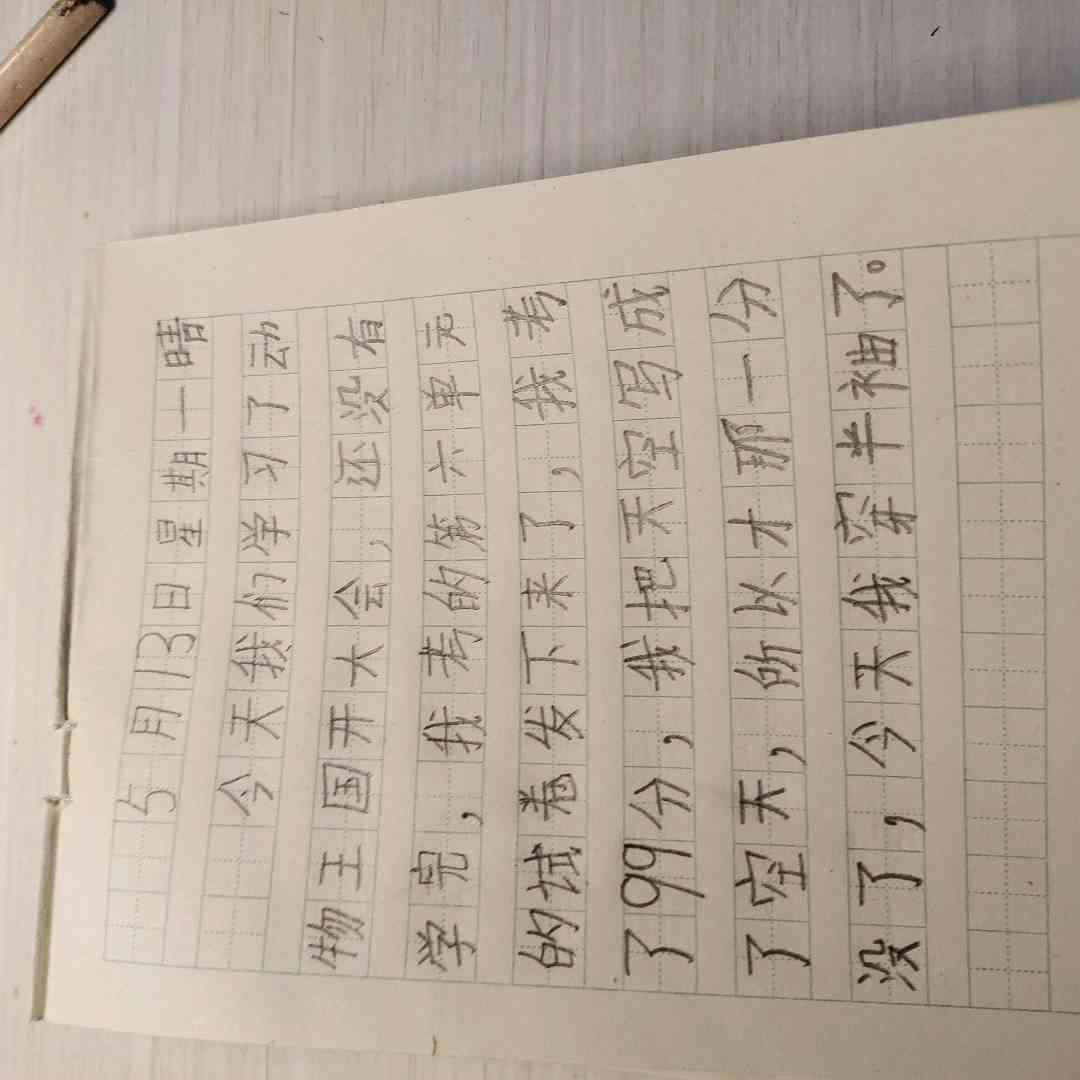 5月13日星期一晴
今天我们学习了动
物王国开大会,还没有
学完,我考的第六单元
的试卷发下来了,我考
了99分,我把天空写成
了空天,所以才那一分
没了,今天我穿半袖了。